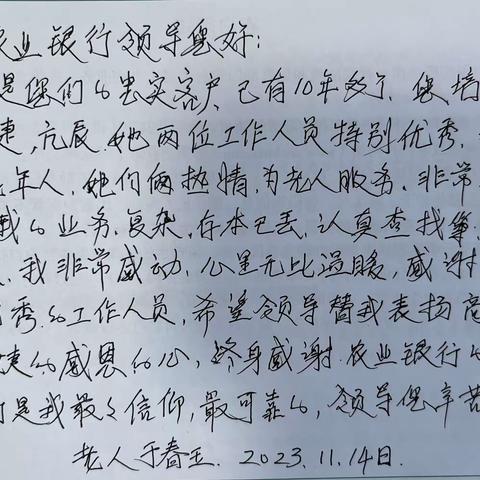 农业银行领导您好:
是你们的忠实客户、已有10年多了、
捷,亢辰,她两位工作人员特别优秀.
年人,她们俩热情,为老人服务.非常
我的业务.复杂,存本已丢,认真查找
我非常感动.心里无比温暖,感谢
秀的工作人员,希望领导替我表扬
捷的感恩的心,终身感谢.农业银行
是我最信仰,最可靠的,领导您辛苦
老人于春玉. 2023.11.14日.